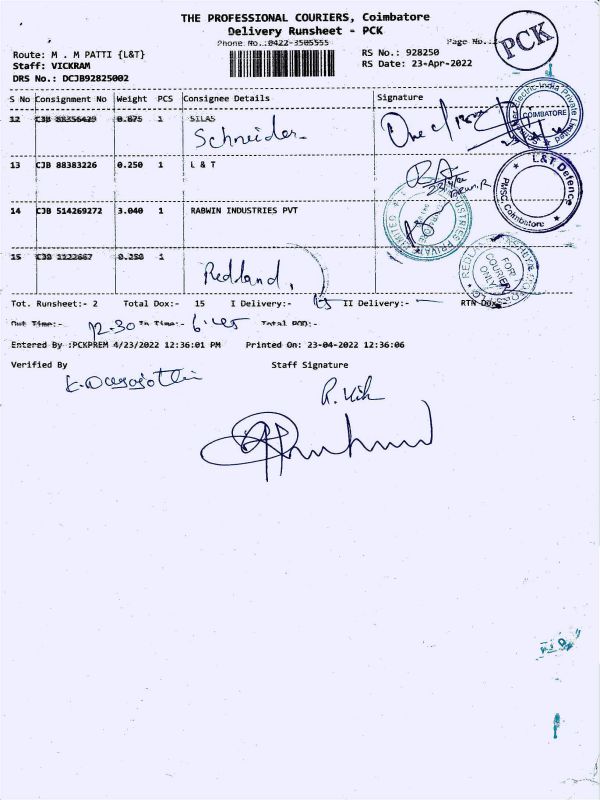 THE PROFESSIONAL COURIERS, Coimbatore
Delivery Runsheet - PCK
Phone No.:0422-3505555
Page No.:
PCK
Route: M . M PATTI {L&T}
RS No.: 928250
Staff: VICKRAM
RS Date: 23-Apr-2022
DRS No.: DCJB92825002
S No Consignment No Weight PCS Consignee Details Signature
12 CJB 88356429 0.875 1 SILAS
Schneider
COIMBATORE
13 CJB 88383226 0.250 1 L & T
L&T Defence
PMSC, Coimbatore
14 CJB 514269272 3.040 1 RABWIN INDUSTRIES PVT
15 CJB 1122667 0.250 1
Redland,
FOR
COURIER
ONLY
Tot. Runsheet:- 2 Total Dox:- 15 I Delivery:- 15 II Delivery:- RTN Dox
Out Time:- 12.30 In Time:- Total POD:-
Entered By :PCKPREM 4/23/2022 12:36:01 PM Printed On: 23-04-2022 12:36:06
Verified By Staff Signature